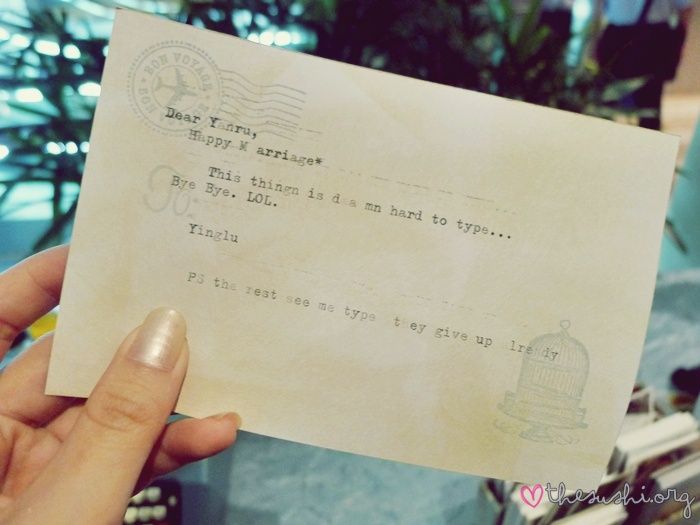 BON VOYAGE
Dear Yanru,
Happy M arriage*
This thingn is d a mn hard to type...
Bye Bye. LOL.
Yinglu
PS the rest see me type they give up alrendy
thesushi.org